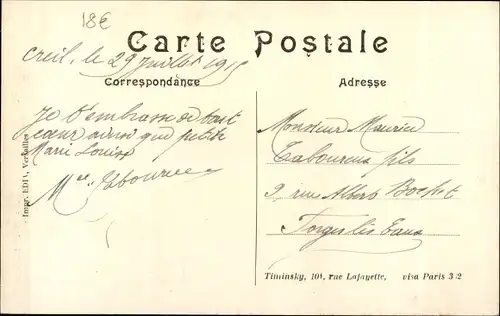 18€
Carte Postale
Creil, le 29 Juillet 1915
Correspondance
Adresse
Je t'embrasse de tout
cœur ainsi que petite
Marie Louise
Monsieur Maurice
Taboureux fils
9, rue Albert Bochet
Forges les Eaux
Impr. EDIA, Versailles
Timinsky, 101, rue Lafayette, visa Paris 3 2